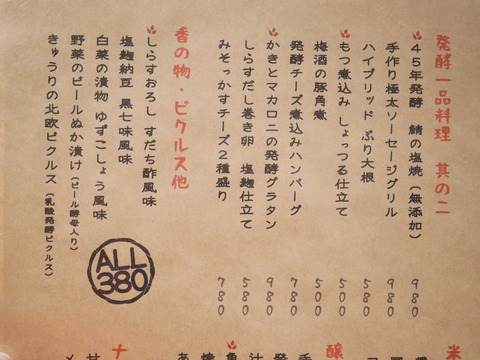 発酵一品料理 其の二
45年発酵 鯖の塩焼(無添加) 980
手作り極太ソーセージグリル 980
ハイブリッド ぶり大根 580
もつ煮込み しょっつる仕立て 500
梅酒の豚角煮 500
発酵チーズ煮込みハンバーグ 780
かきとマカロニの発酵グラタン 980
しらすだし巻き卵 塩麹仕立て 580
みそっかすチーズ2種盛り 780
香の物・ピクルス他
しらすおろし すだち酢風味
塩麹納豆 黒七味風味
白菜の漬物 ゆずこしょう風味
野菜のビールぬか漬け(ビール酵母入り)
きゅうりの北欧ピクルス(乳酸発酵ピクルス)
ALL
380
米
醸
ナ